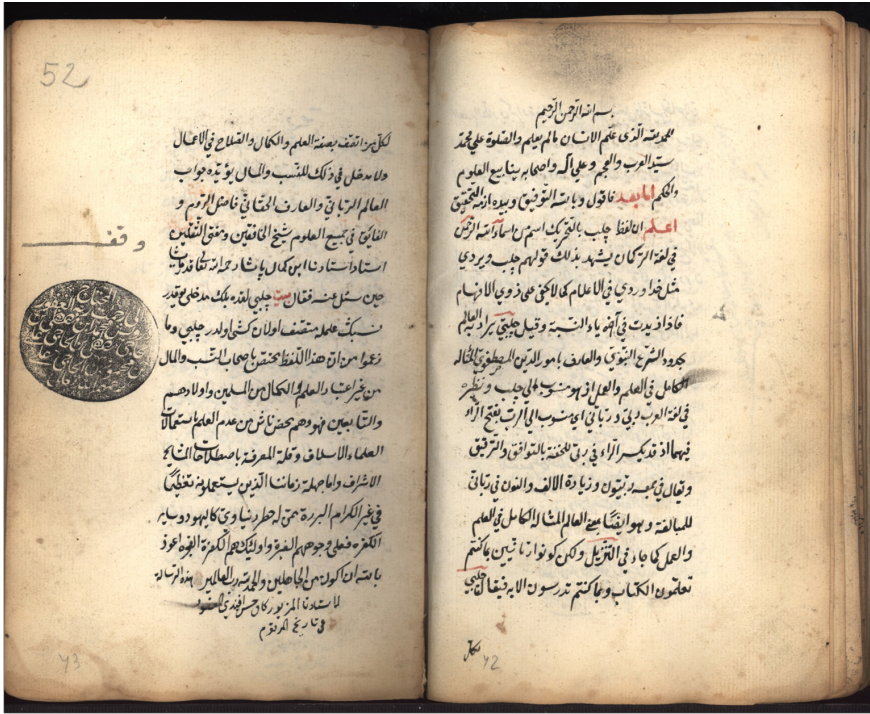 بسم الله الرحمن الرحيم
للحمد لله الذى علم الانسان مالم يعلم والصلوة على محمد
سيد العرب والعجم وعلى آله واصحابه ينابيع العلوم
والحكم اما بعد فاقول وبالله التوفيق وبيده ازمة التحقيق
اعلم ان لفظ چلب بالتحريك اسم من اسماء الله الرحمن
فى لغة التركمان يشهد بذلك قولهم چلب ويردى
مثل خداوردى فى الاعلام كما لا يخفى على ذوى الافهام
فاذا زيدت فى آخره ياء النسبة وقيل چلبى يراد به العالم
بحدود الشرع النبوى والعارف بامور الدين المصطفوى
الكامل فى العلم والعمل اذ هو منسوب الى چلب ونظيره
فى لغة العرب ربى وربانى اى منسوب الى الرب بفتح الراء
فيهما اذ قد يكسر الراء فى ربى للخفة بالتوافق والترقيق
ويقال فى جمعه ربيون وزيادة الالف والنون فى ربانى
للمبالغة وهو ايضا بمعنى العالم المتاله الكامل فى العلم
والعمل كما جاء فى التنزيل ولكن كونوا ربانيين بما كنتم
تعلمون الكتاب وبما كنتم تدرسون الاية فيقال چلبى
لكل
42
52
لكل من اتصف بصفة العلم والكمال والصلاح فى الاعمال
ولا مدخل فى ذلك للنسب والمال يؤيده جواب
العالم الربانى والعارف الحقانى فاضل الروم و
الفايق فى جميع العلوم شيخ الخافقين ومفتى الثقلين
استاد استادنا ابن كمال پاشا رحمه الله تعالى
حين سئل عنه فقال بيت چلبى لقده ملك مدخلى يوقدر
نسبك علمله متصف اولان كشى اولدر چلبى وما
زعموا من ان هذا اللفظ يختص باصحاب النسب والمال
من غير اعتبار العلم والكمال من المسلمين واولادهم
والتابعين فهو وهم محض ناش من عدم العلم باستعمالات
العلماء الاسلاف وقلة المعرفة باصطلاحات المشايخ
الاشراف واما جهلة زماننا الذين يستعملونه تعظيما
فى غير الكرام البررة ممن له خطر دنياوى كاليهود وساير
الكفرة فعلى وجوههم الغبرة واولئك هم الكفرة الفجرة اعوذ
بالله ان اكون من الجاهلين والحمد لله رب العالمين هذه الرسالة
لاستادنا المزبور حسن افندى
فى تاريخ المرقوم
وقف
43